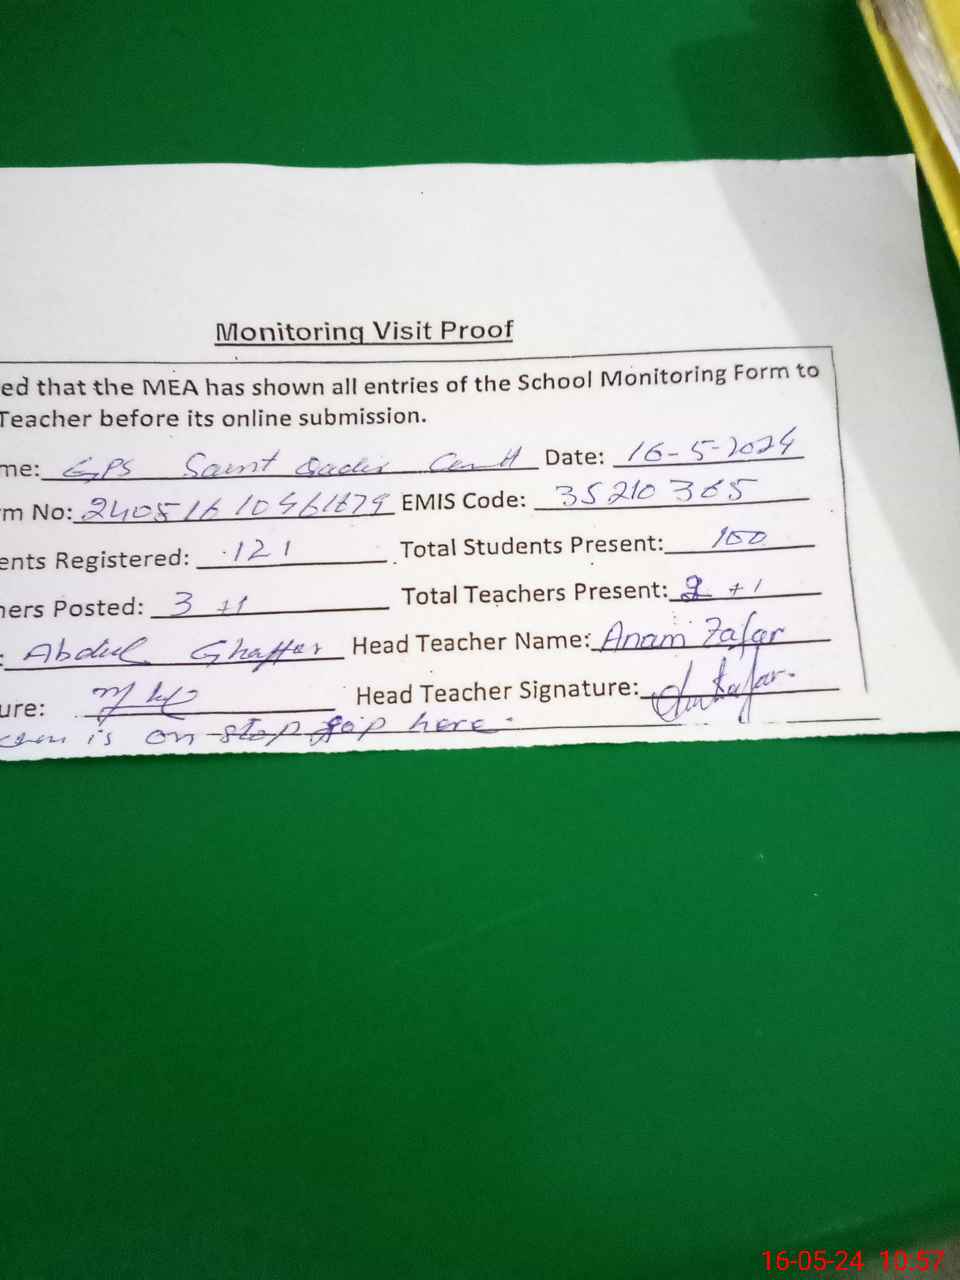 Monitoring Visit Proof
ed that the MEA has shown all entries of the School Monitoring Form to
Teacher before its online submission.
me: GPS Saint Qadir Cantt Date: 16-5-2024
m No: 24051610461879 EMIS Code: 35210365
ents Registered: 121 Total Students Present: 100
hers Posted: 3 +1 Total Teachers Present: 2 +1
: Abdul Ghaffar Head Teacher Name: Anam Zafar
ure: Head Teacher Signature:
is on stop gap here.
16-05-24 10:57